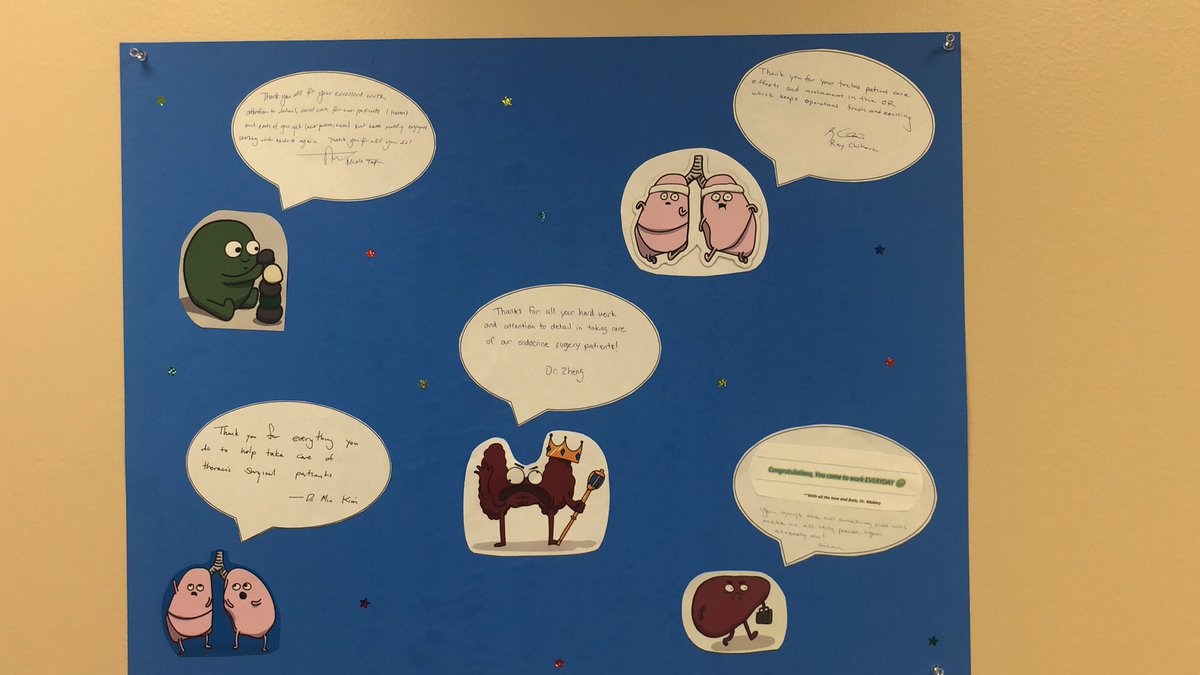 Thank you all for your excellent work,
attention to detail, and care for our patients. I haven't
met each of you yet (new person here) but have really enjoyed
working with residents again. Thank you for all you do!
Thank you for your tireless patient care
efforts and involvement in the OR
which keeps operations fresh and exciting
Ray Chihara
Thanks for all your hard work
and attention to detail in taking care
of our endocrine surgery patients!
Dr. Zheng
Thank you for everything you
do to help take care of
thoracic surgical patients
—Dr. Min Kim
Congratulations, You come to work EVERYDAY
—With all the love and feels, Dr. Mobley
already do!